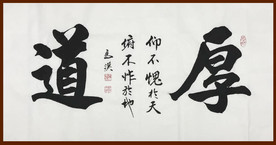 厚
仰不愧於天
俯不怍於地
道